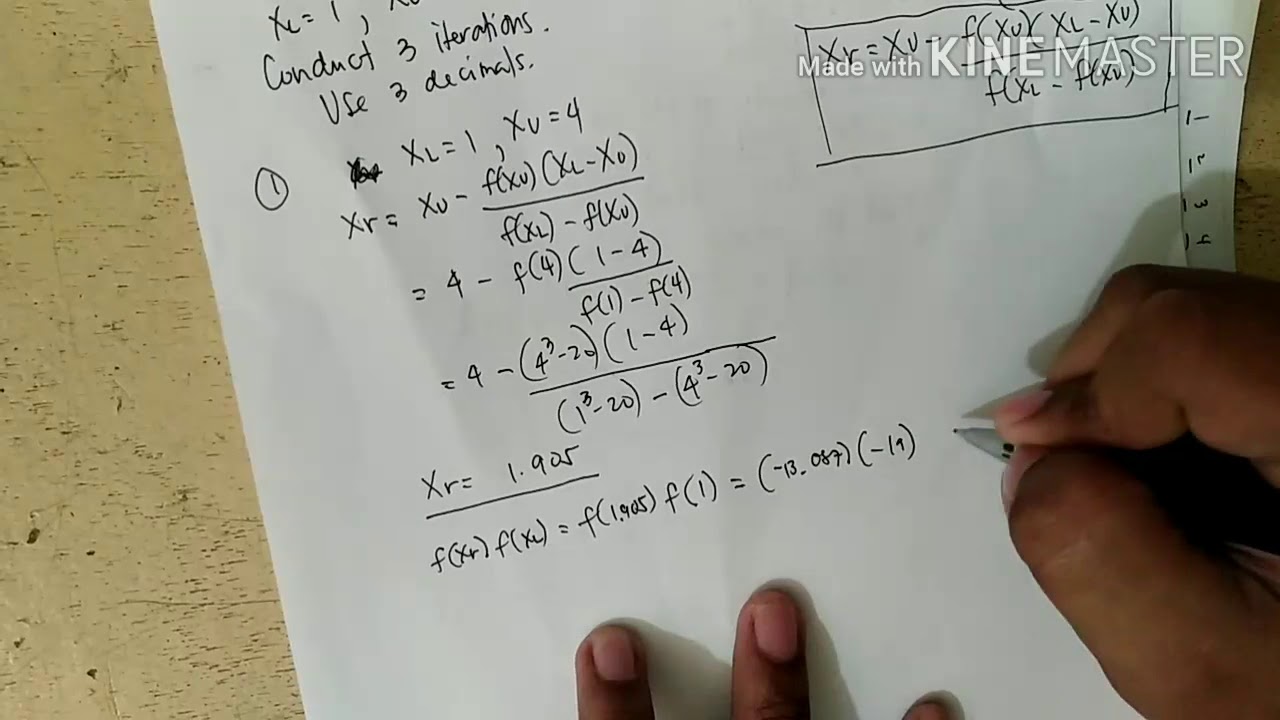 XL = 1 , XU
Conduct 3 iterations.
Use 3 decimals.
Xr = XU - f(XU)(XL - XU)
f(XL - f(XU)
Made with KINEMASTER
1 XL = 1 , XU = 4
Xr = XU - f(XU)(XL - XU)
f(XL) - f(XU)
= 4 - f(4)(1 - 4)
f(1) - f(4)
= 4 - (4³-20)(1-4)
(1³-20) - (4³-20)
Xr = 1.905
f(Xr) f(XL) = f(1.905) f(1) = (-13.087)(-19)